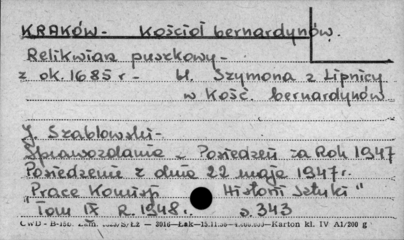 KRAKÓW - Kościół bernardynów.
Relikwiarz puszkowy -
z ok. 1685 r - bł. Szymona z Lipnicy
w Kośc. bernardynów
J. Szablowski -
Sprawozdanie z Posiedzeń za Rok 1947
Posiedzenie z dnia 22 maja 1947 r.
"Prace Komisji Historii Sztuki"
Tom IX R. 1948 r. s. 343
CWD - Łak — Karton kl. IV A1/200 g